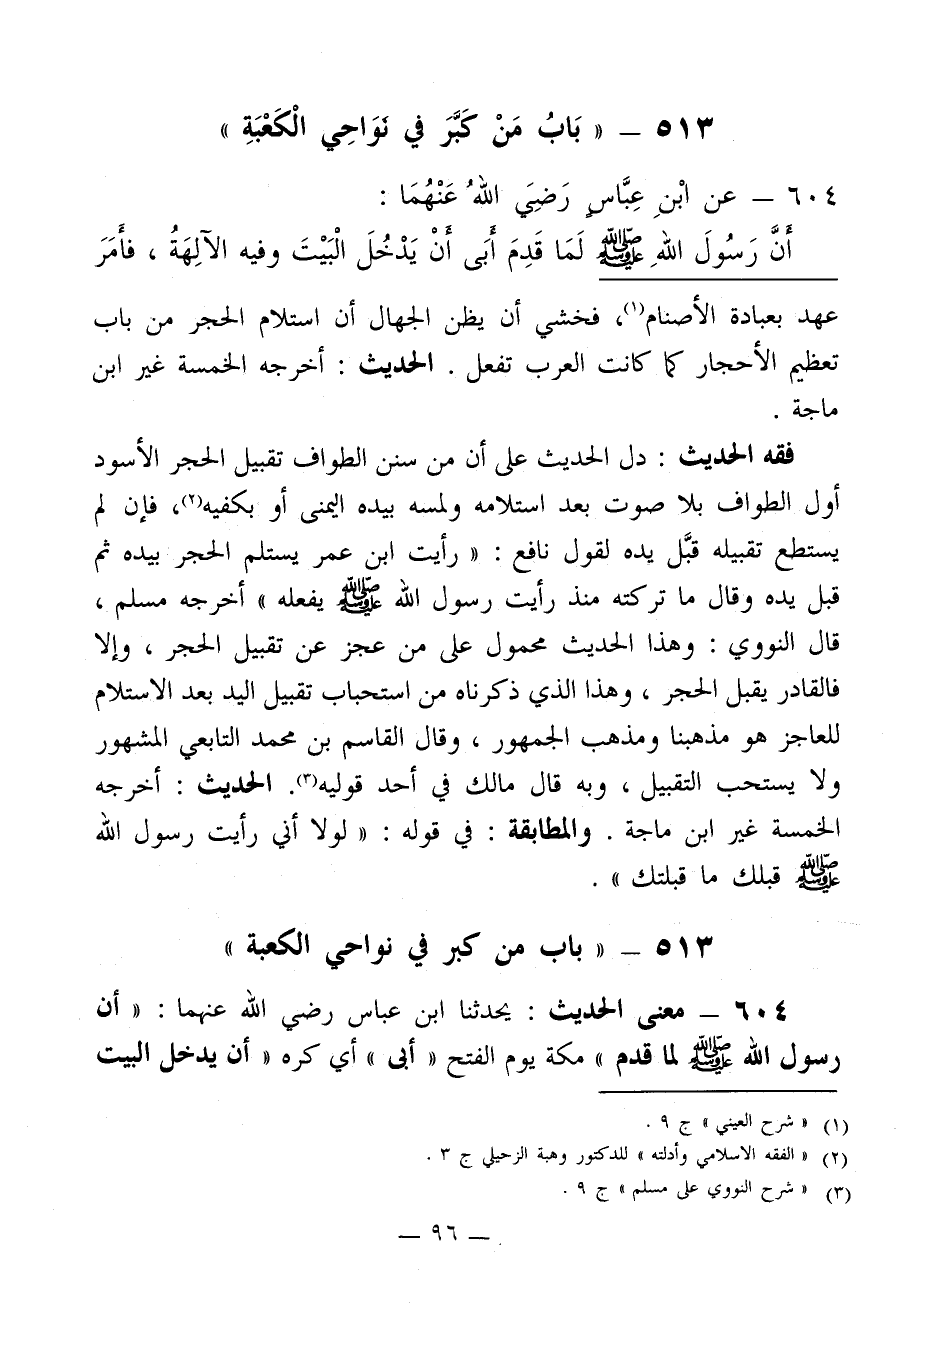 ٥١٣ – « بَابُ مَنْ كَبَّرَ في نَوَاحِي الْكَعْبَةِ »
٦٠٤ – عن ابْنِ عِبَّاسٍ رَضِيَ اللهُ عَنْهُمَا :
أَنَّ رَسُولَ اللهِ ﷺ لَمَا قَدِمَ أَبَى أَنْ يَدْخُلَ الْبَيْتَ وفيه الآلِهَةُ ، فأَمَرَ
عهد بعبادة الأصنام(١)، فخشي أن يظن الجهال أن استلام الحجر من باب
تعظيم الأحجار كما كانت العرب تفعل . الحديث : أخرجه الخمسة غير ابن
ماجة .
فقه الحديث : دل الحديث على أن من سنن الطواف تقبيل الحجر الأسود
أول الطواف بلا صوت بعد استلامه ولمسه بيده اليمنى أو بكفيه(٢)، فإن لم
يستطع تقبيله قبَّل يده لقول نافع : « رأيت ابن عمر يستلم الحجر بيده ثم
قبل يده وقال ما تركته منذ رأيت رسول الله ﷺ يفعله » أخرجه مسلم ،
قال النووي : وهذا الحديث محمول على من عجز عن تقبيل الحجر ، وإلا
فالقادر يقبل الحجر ، وهذا الذي ذكرناه من استحباب تقبيل اليد بعد الاستلام
للعاجز هو مذهبنا ومذهب الجمهور ، وقال القاسم بن محمد التابعي المشهور
ولا يستحب التقبيل ، وبه قال مالك في أحد قوليه(٣). الحديث : أخرجه
الخمسة غير ابن ماجة . والمطابقة : في قوله : « لولا أني رأيت رسول الله
ﷺ قبلك ما قبلتك » .
٥١٣ – « باب من كبر في نواحي الكعبة »
٦٠٤ – معنى الحديث : يحدثنا ابن عباس رضي الله عنهما : « أن
رسول الله ﷺ لما قدم » مكة يوم الفتح « أبى » أي كره « أن يدخل البيت
(١) « شرح العيني » ج ٩ .
(٢) « الفقه الاسلامي وأدلته » للدكتور وهبة الزحيلي ج ٣ .
(٣) « شرح النووي على مسلم » ج ٩ .
– ٩٦ –